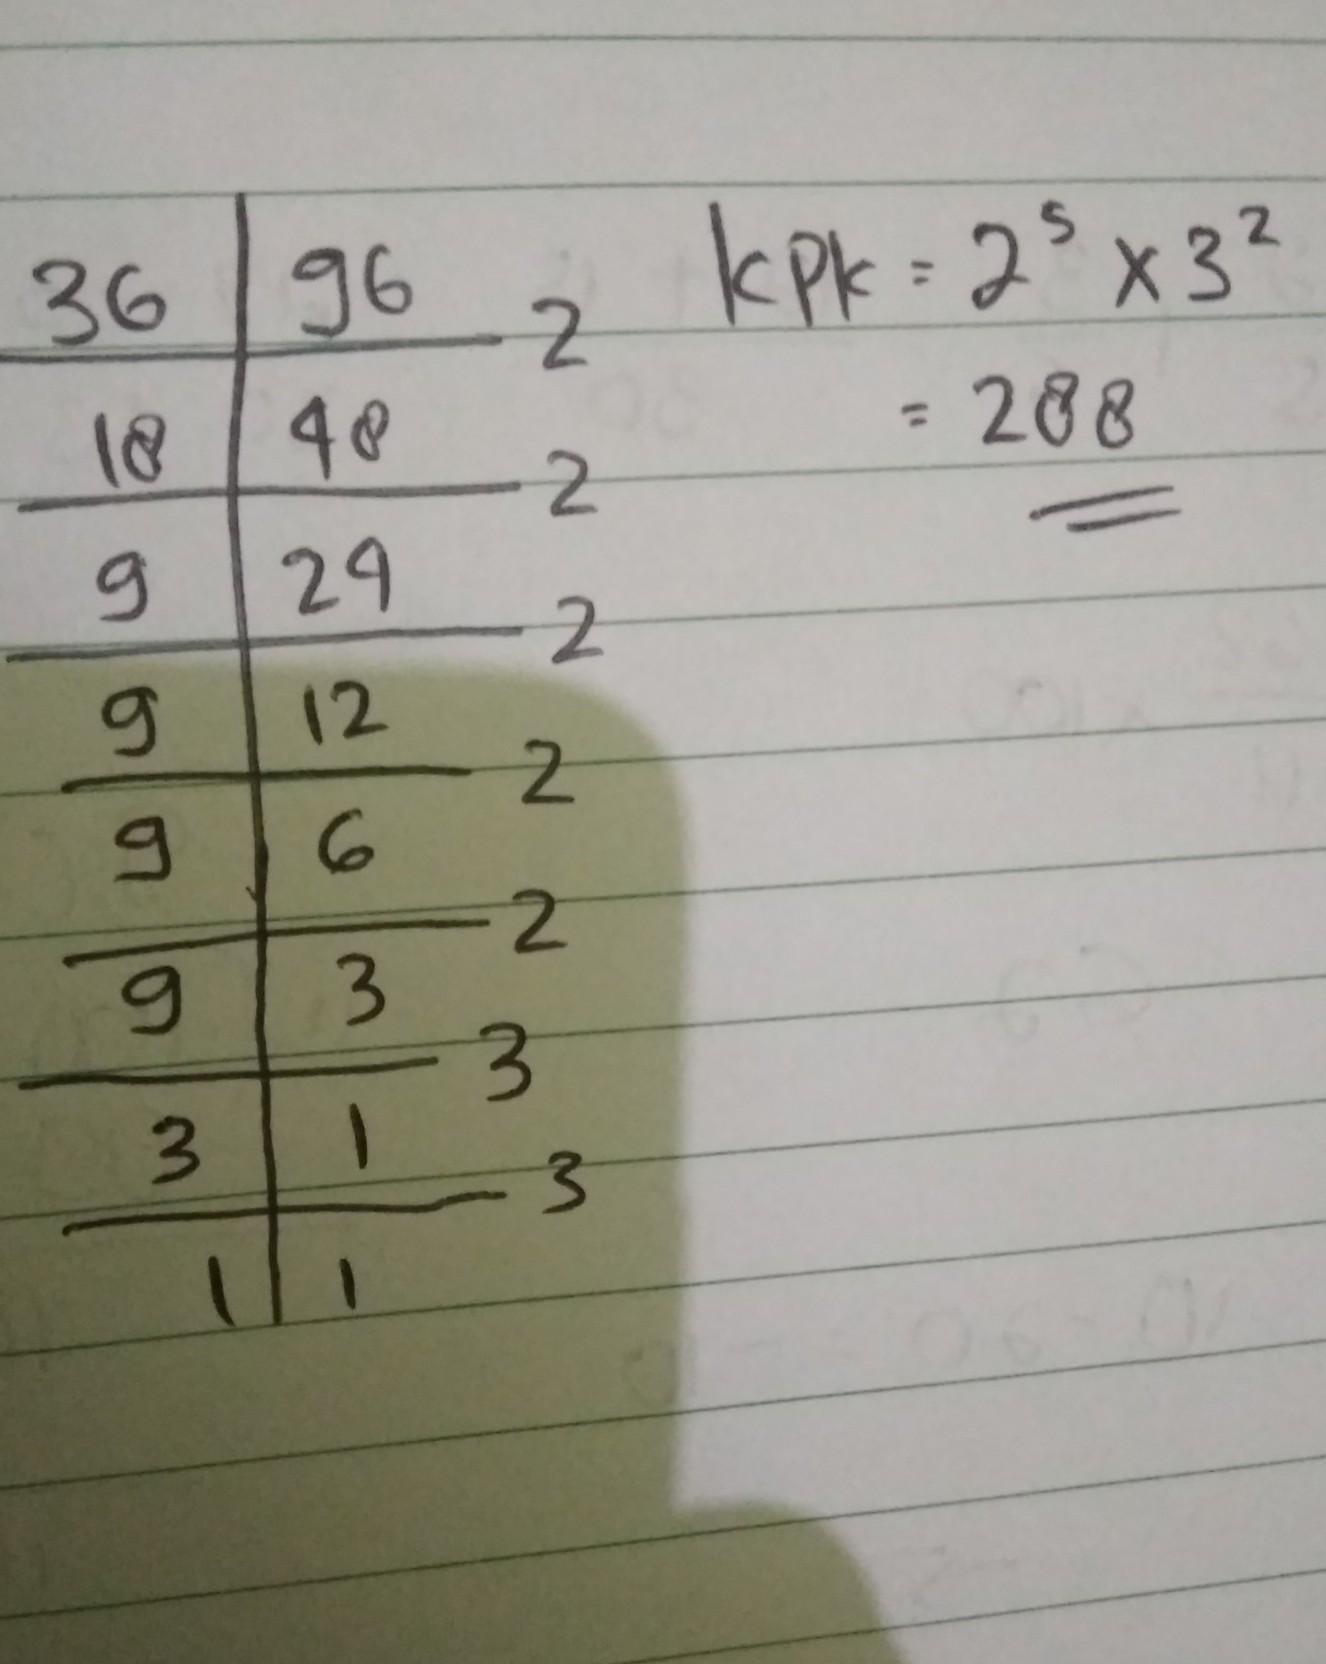 36 | 96 2
18 | 48 2
9 | 24 2
9 | 12 2
9 | 6 2
9 | 3 3
3 | 1 3
1 | 1
kpk = 2⁵ x 3²
= 288